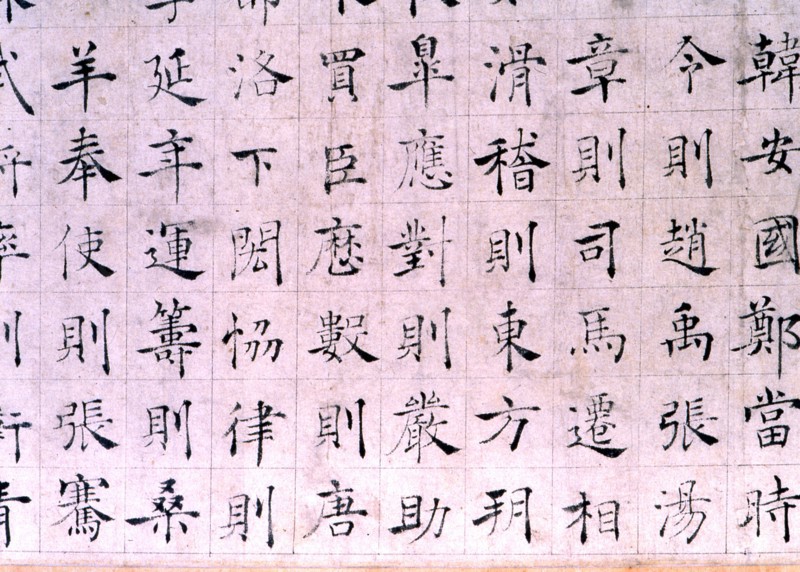 韓安國鄭當時
令則趙禹張湯
章則司馬遷相
滑稽則東方朔
皐應對則嚴助
買臣歷數則唐
洛下閎恊律則
延年運籌則桑
羊奉使則張騫